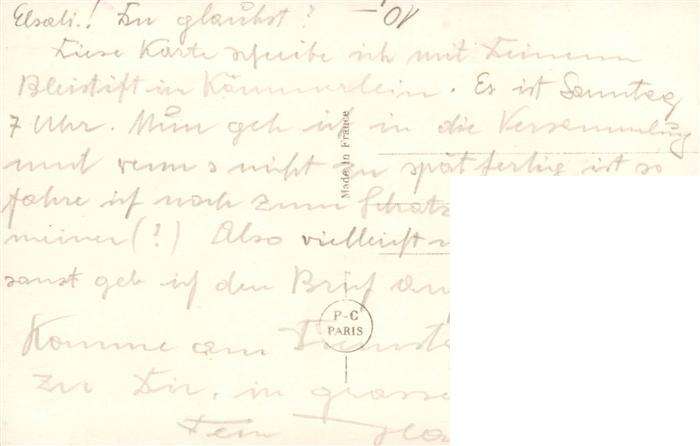 Elsali! Du glaubst? 10,-
Diese Karte schreibe ich mit Deinem
Bleistift in Kämmerlein. Es ist Sonntag
7 Uhr. Nun geh ich in die Versammlung
und wenn's nicht zu spät fertig ist so
fahre ich noch zum Schatz
meiner (?) Also vielleicht
sonst geb ich den Brief
Komme am
zu Dir, in grosser
Dein
Made in France
P-C
PARIS